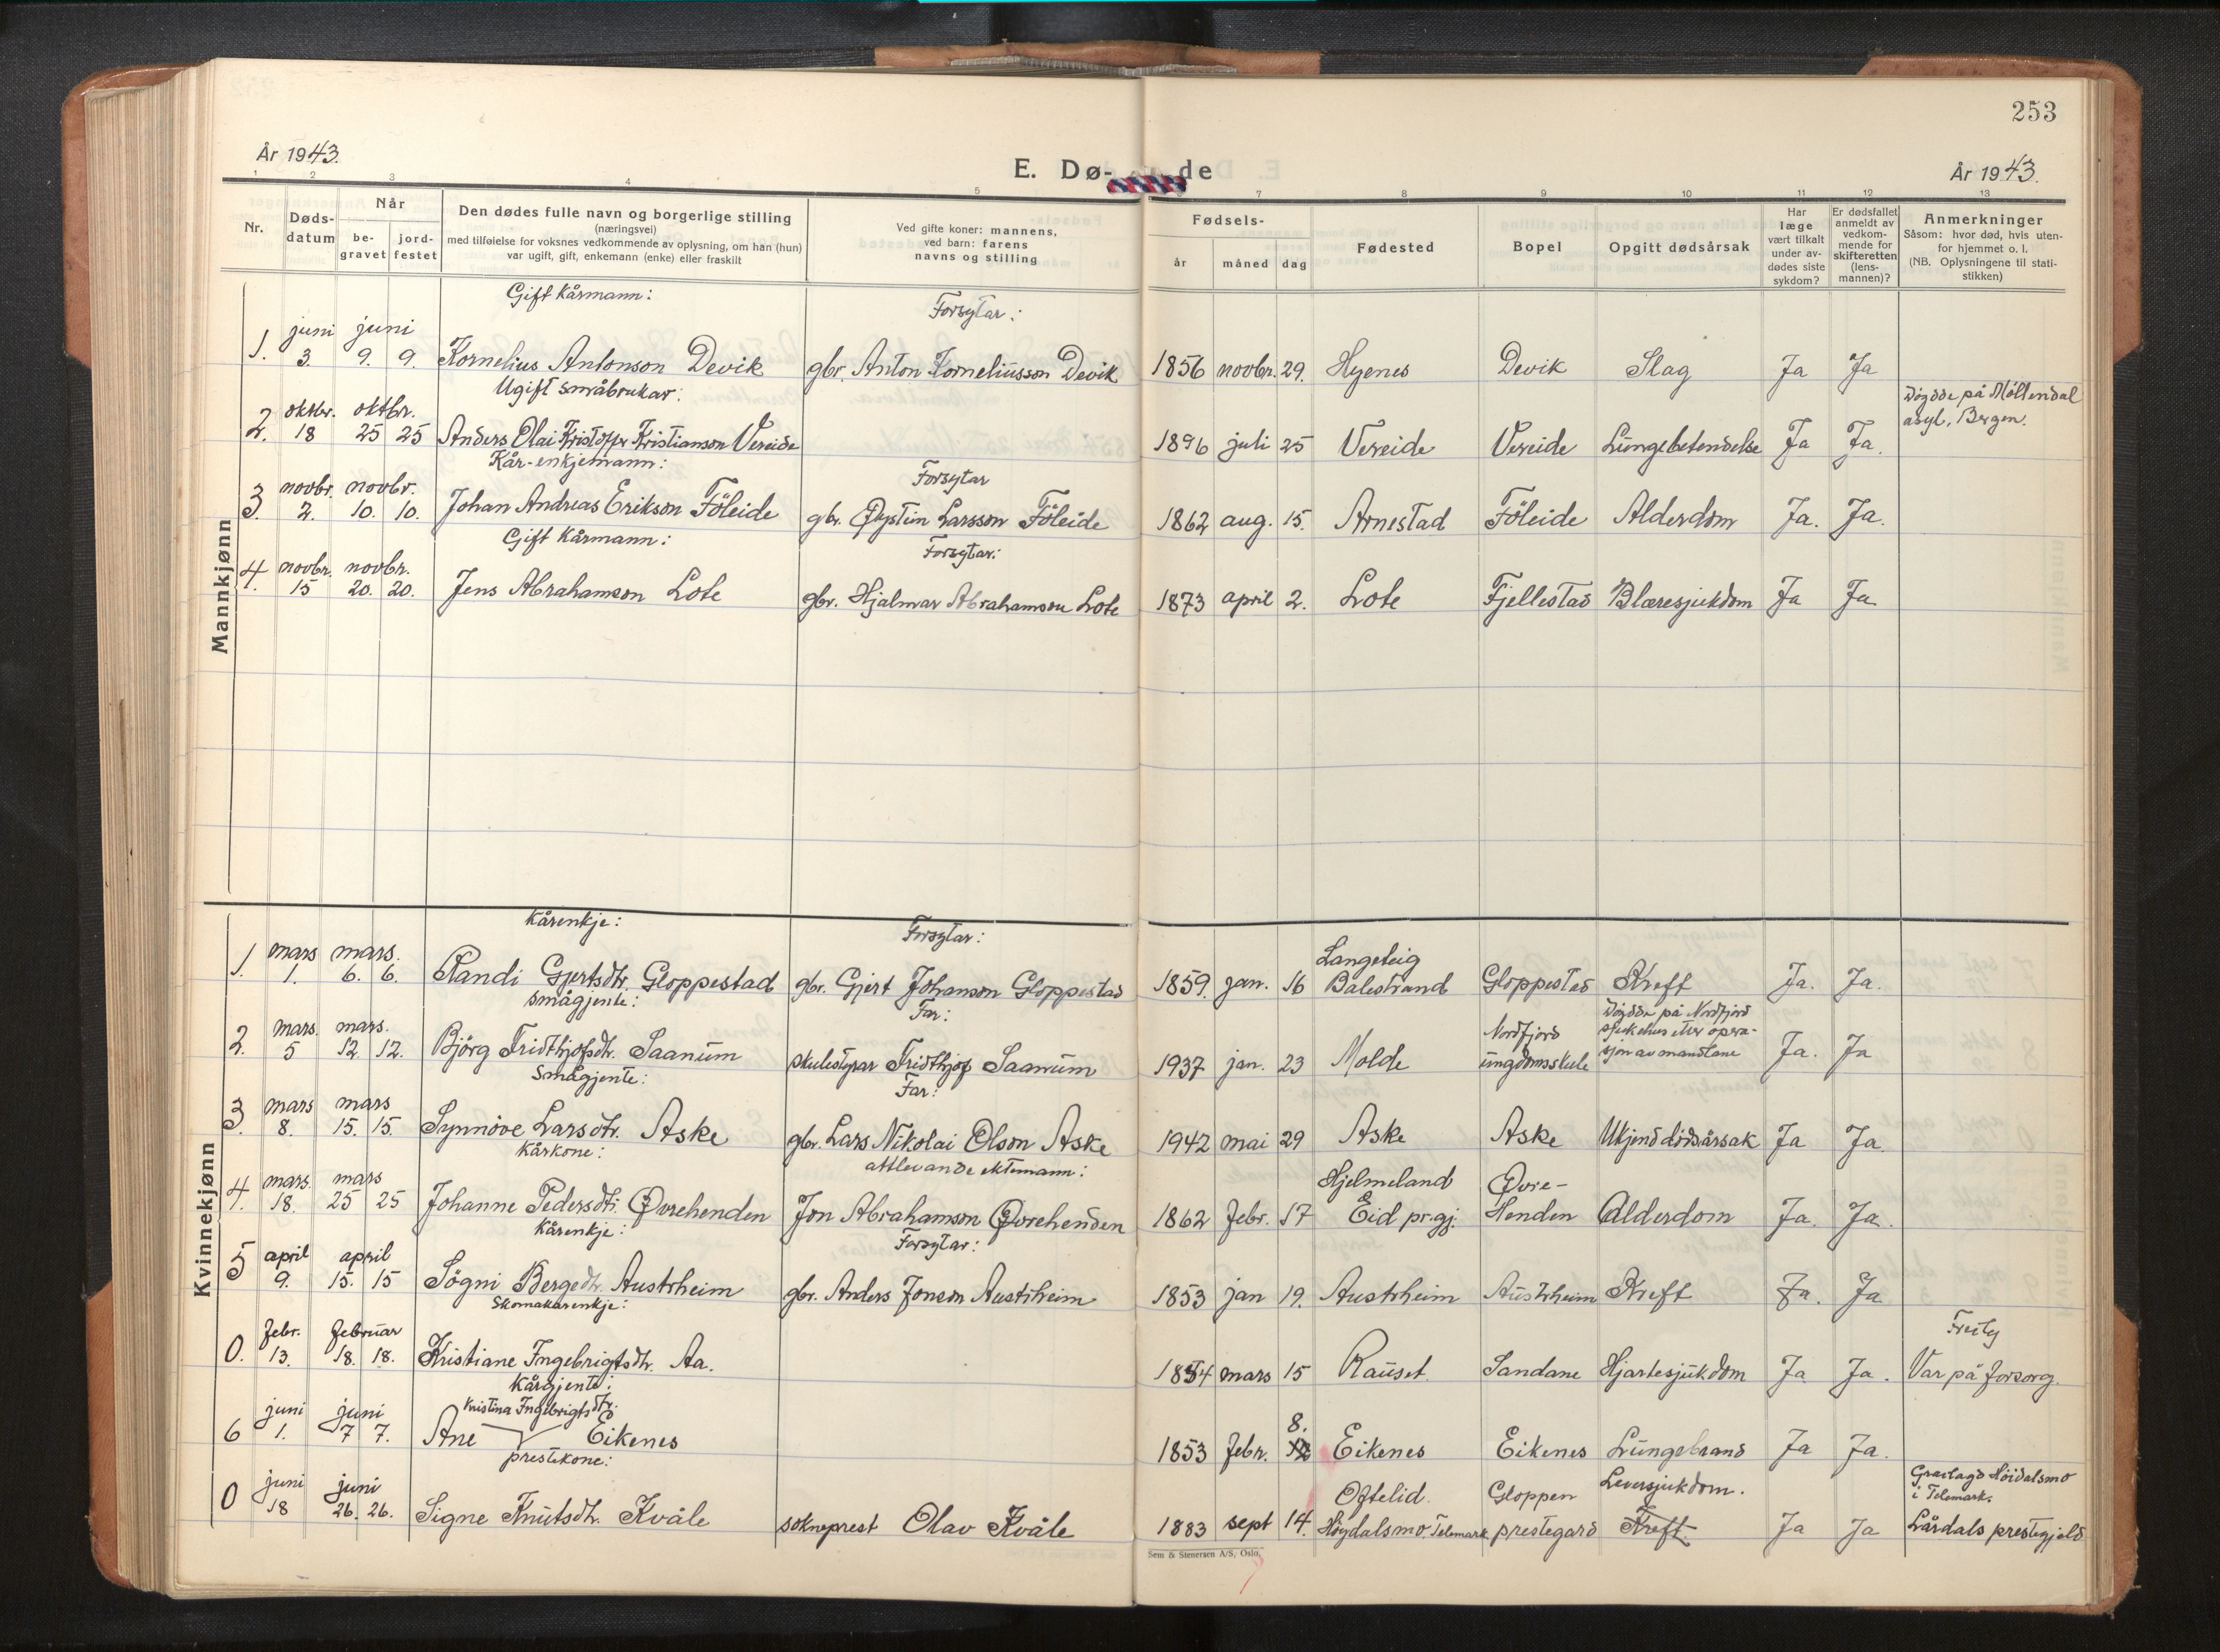 253
År 1943.
E. Dø- de
År 1943.
1 2 3 4 5 7 8 9 10 11 12 13
Nr.
Døds-
datum
Når
be-
gravet
jord-
festet
Den dødes fulle navn og borgerlige stilling
(næringsvei)
med tilføielse for voksnes vedkommende av oplysning, om han (hun)
var ugift, gift, enkemann (enke) eller fraskilt
Ved gifte koner: mannens,
ved barn: farens
navns og stilling
Fødsels-
år måned dag
Fødested
Bopel
Opgitt dødsårsak
Har
læge
vært tilkalt
under av-
dødes siste
sykdom?
Er dødsfallet
anmeldt av
vedkom-
mende for
skifteretten
(lens-
mannen)?
Anmerkninger
Såsom: hvor død, hvis uten-
for hjemmet o. l.
(NB. Oplysningene til stati-
stikken)
Mannkjønn
Gift kårmann: Forsytar:
juni juni
1. 3. 9. 9. Kornelius Antonson Devik gbr. Anton Korneliusson Devik 1856 novbr. 29. Hyenes Devik Slag Ja Ja
Ugift småbrukar: Døydde på Møllendal
oktbr. oktbr. asyl, Bergen.
2. 18 25 25 Anders Olai Kristoffer Kristianson Vereide 1896 juli 25 Vereide Vereide Lungebetendelse Ja Ja.
Kår-enkjemann: Forsytar
novbr. novbr.
3. 2. 10. 10. Johan Andreas Erikson Föleide gbr. Øystein Larsson Föleide 1862 aug. 15. Arnestad Föleide Alderdom Ja. Ja.
Gift kårmann: Forsytar:
novbr. novbr.
4. 15 20. 20. Jens Abrahamson Lote gbr. Hjalmar Abrahamson Lote 1873 april 2. Lote Fjellestad Blæresjukdom Ja Ja
Kvinnekjønn
Kårenkje: Forsytar:
mars mars. Langeteig
1. 1. 6. 6. Randi Gjertsdtr. Gloppestad gbr. Gjert Johanson Gloppestad 1859. jan. 16 Balestrand Gloppestad Kreft Ja. Ja.
Smågjente: Far: Døydde på Nordfjord
mars. mars. Nordfjord sjukehus etter opera-
2. 5 12 12. Björg Fridthjofsdtr. Saanum skulestyrar Fridthjof Saanum 1937 jan. 23 Molde ungdomsskule sjon av mandlane Ja. Ja
Smågjente: Far:
mars mars
3. 8. 15. 15. Synnöve Larsdtr. Aske gbr. Lars Nikolai Olson Aske 1942 mai 29 Aske Aske Ukjend dödsårsak Ja Ja
Kårkone: attlevande ektemann:
mars. mars Hjelmeland Øvre-
4. 18. 25 25 Johanne Pedersdtr. Øvrehenden Jon Abrahamson Øvrehenden 1862 febr. 17 Eid pr.gj. Henden Alderdom Ja. Ja.
Kårenkje: Forsytar:
april april
5 9. 15. 15 Sögni Bergedtr. Austrheim gbr. Anders Jonson Austrheim 1853 jan 19. Austrheim Austrheim Kreft Ja. Ja
Skomakarenkje:
febr. februar
0. 13. 18. 18. Kristiane Ingebrigtsdtr. Aa. 1854 mars 15 Rauset. Sandane Hjartesjukdom Ja Ja. Var på forsorg.
Kårgjente:
juni juni Kristina Ingebrigtsdtr. 8.
6 1. 7 7. Ane Eikenes 1853 febr. Eikenes Eikenes Lungebrand Ja Ja.
prestekone:
juni juni Oftelid. Gloppen Leversjukdom. Gravlagd Höidalsmo
i Telemark.
0 18 26. 26. Signe Knutsdtr. Kvåle sokneprest Olav Kvåle 1883 sept 14. Høydalsmo Telemark prestegard Kreft Ja Ja Lårdals prestegjeld
Sem & Stenersen A/S, Oslo.